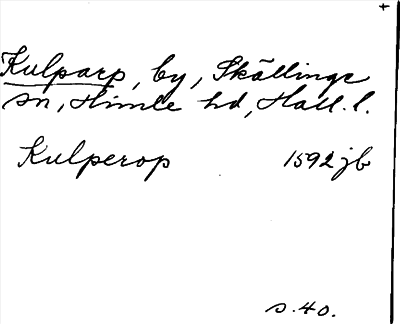 Kulparp, by, Skällinge
sn, Himle hd, Hall. l.
Kulperop 1592 jb
s. 40.